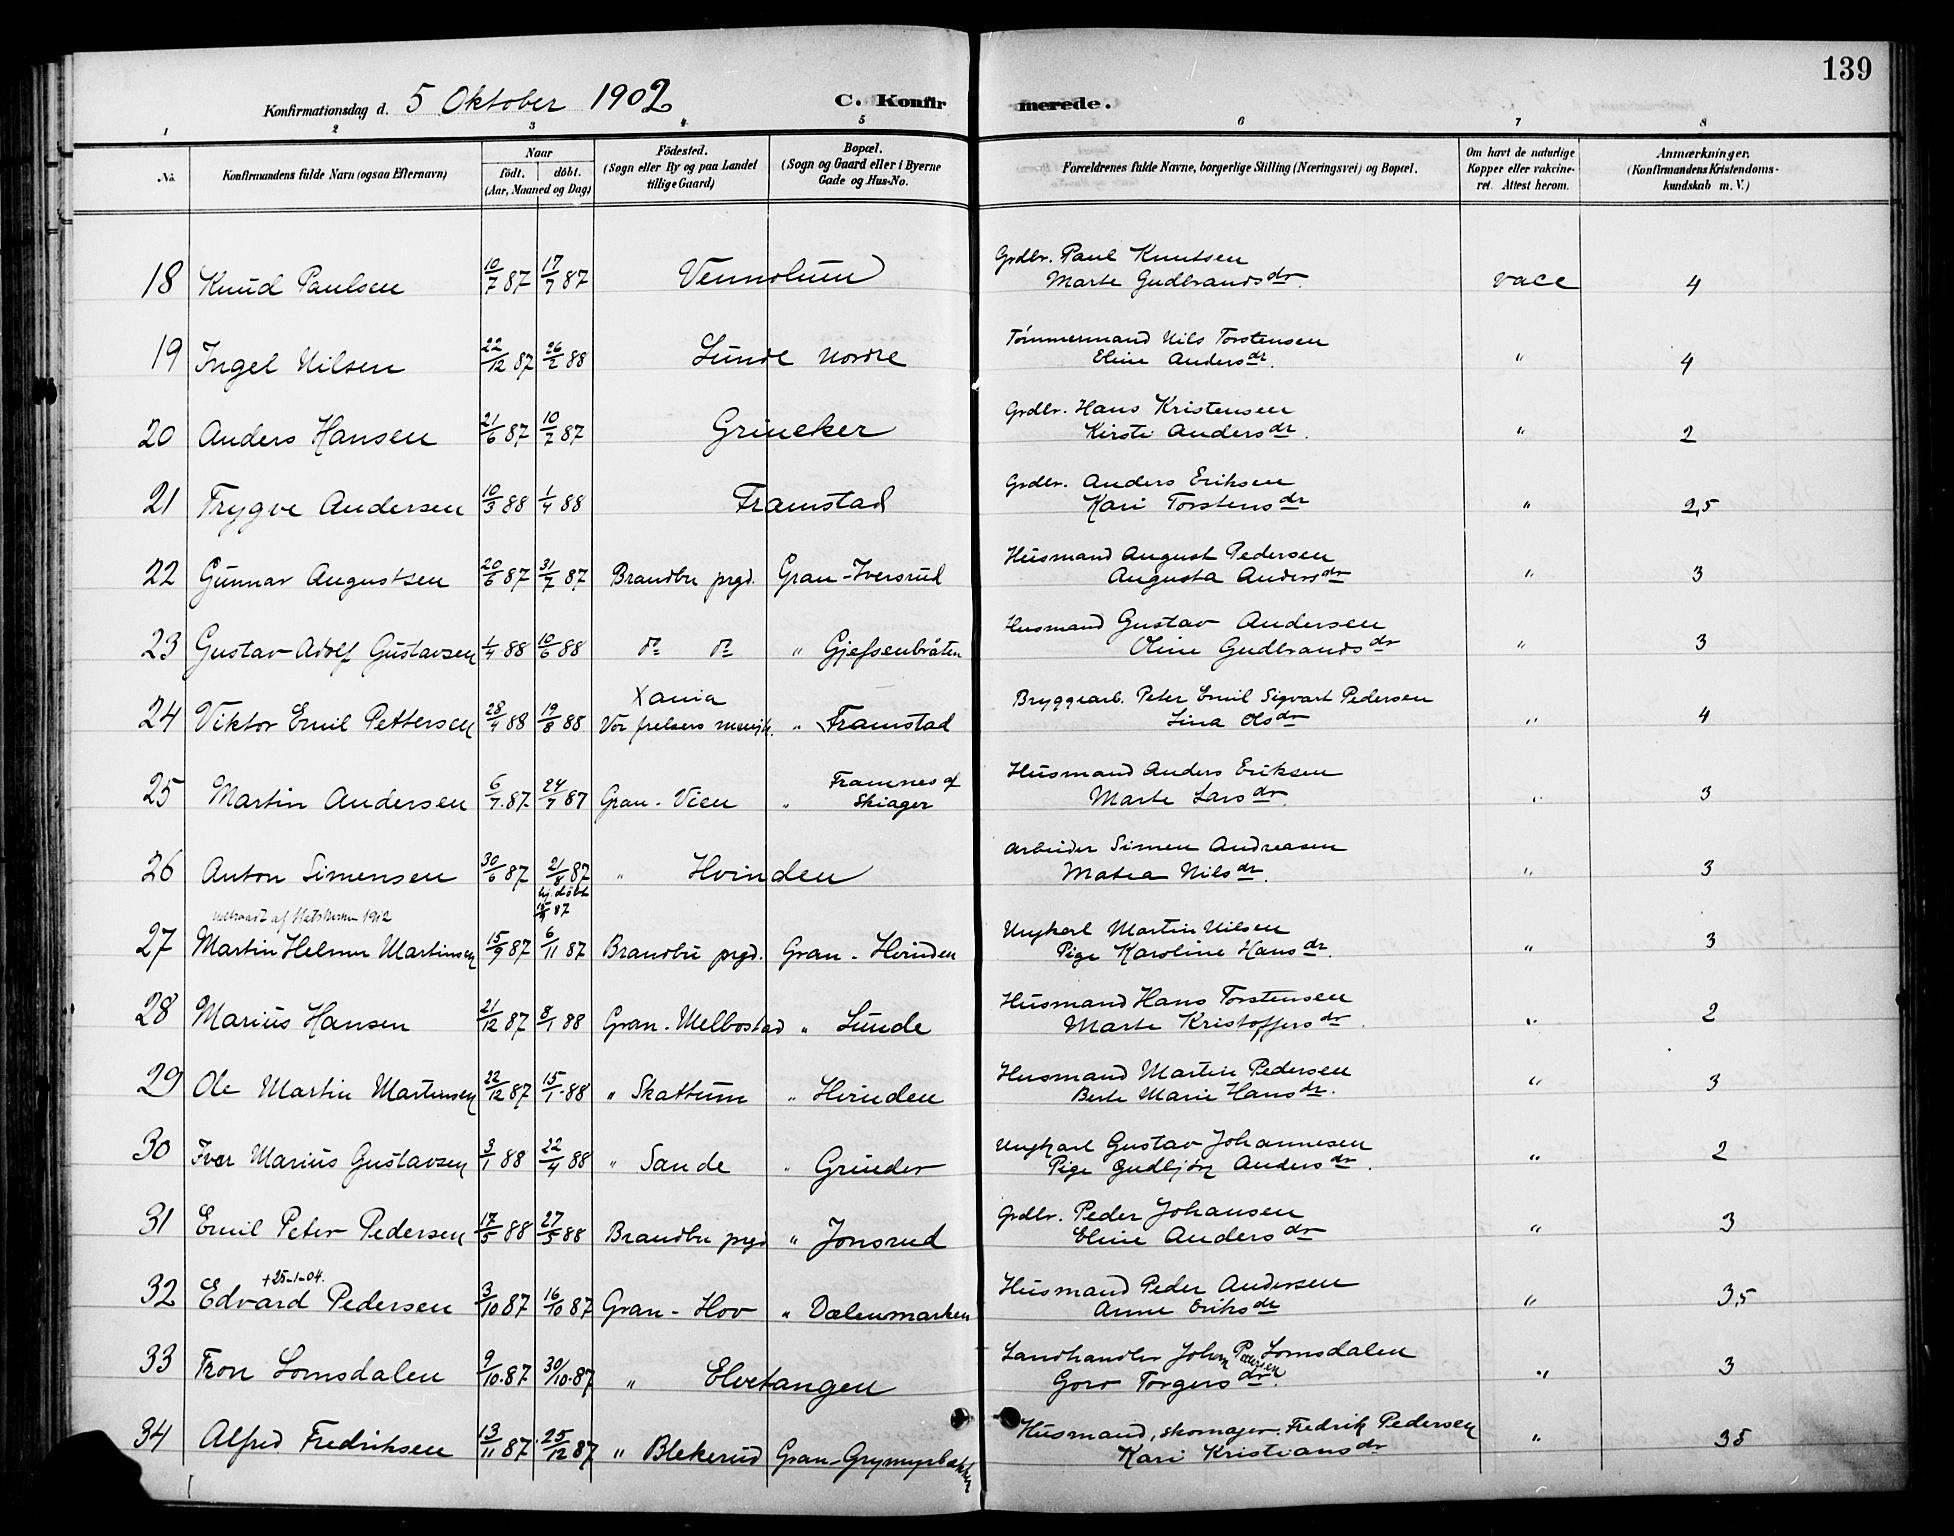 139
Konfirmationsdag d. 5 Oktober 1902 C. Konfirmerede.
1 2 3 4 5 6 7 8
No. Konfirmandens fulde Navn (ogsaa Efternavn) Naar født. døbt. (Aar, Maaned og Dag) Fødested. (Sogn eller By og paa Landet tillige Gaard) Bopæl. (Sogn og Gaard eller i Byerne Gade og Hus-No. Forældrenes fulde Navne, borgerlige Stilling (Næringsvei) og Bopæl. Om havt de naturlige Kopper eller vakcineret. Attest herom. Anmærkninger. (Konfirmandens Kristendomskundskab m. V.)
18 Knud Paulsen 10/7 87 17/7 87 Vennolum Grdbr. Paul Knutsen
Marte Gudbrandsdr. vacc 4
19 Ingel Nilsen 22/12 87 26/2 88 Lunde nordre Tømmermand Nils Torstensen
Eline Andersdr. " 4
20 Anders Hansen 21/6 87 10/7 87 Grineker Grdbr. Hans Kristensen
Kirsti Andersdr. " 2
21 Trygve Andersen 10/3 88 1/4 88 Framstad Grdbr. Anders Eriksen
Kari Torstensdr " 2,5
22 Gunnar Augustsen 20/6 87 31/7 87 Brandbu prgd. Gran - Iversrud Husmand August Pedersen
Augusta Andersdr " 3
23 Gustav Adolf Gustavsen 1/4 88 10/6 88 do do " Gjefsenbråten Husmand Gustav Andersen
Oline Gudbrandsdr " 3
24 Viktor Emil Pettersen 28/4 88 19/8 88 Xania
Vor frelsers menigh. " Framstad Bryggearb. Peter Emil Sigvart Pedersen
Lina Olsdr " 4
25 Martin Andersen 6/7 87 24/7 87 Gran - Vien " Framnes af
Skiager Husmand Anders Eriksen
Marte Larsdr. " 3
26 Anton Simensen 30/6 87 21/8 87 " Hvinden Arbeider Simen Andreasen
Matea Nilsdr. " 3
hj. døbt
87
27 Martin Helmer Martinsen 15/9 87 6/11 87 Brandbu prgd. Gran - Hvinden Ungkarl Martin Nilsen
Pige Karoline Hansdr. " 3
Udtraadt af Statskirken 1912
28 Marius Hansen 21/12 87 8/1 88 Gran - Melbostad " Lunde Husmand Hans Torstensen
Marte Kristoffersdr. " 2
29 Ole Martin Martinsen 22/12 87 15/1 88 " Skattum " Hvinden Husmand Martin Pedersen
Berte Marie Hansdr. " 3
30 Iver Marius Gustavsen 3/1 88 22/4 88 " Sande " Grinder Ungkarl Gustav Johannesen
Pige Gudbjør Andersdr. " 2
31 Emil Peter Pedersen 17/5 88 27/5 88 Brandbu prgd " Jonsrud Grdbr. Peder Johansen
Eline Andersdr " 3
+25-1-04.
32 Edvard Pedersen 3/10 87 16/10 87 Gran - Hov " Dælenmarken Husmand Peder Andersen
Anne Eriksdr " 3,5
33 Tron Lomsdalen 9/10 87 30/10 87 " Elvetangen Landhandler Johan Pedersen Lomsdalen
Goro Torgersdr. " 3
34 Alfred Fredriksen 13/11 87 25/12 87 " Blekerud Gran - Grymyrbakken Husmand, skomager. Fredrik Pedersen
Kari Kristiansdr " 3 5